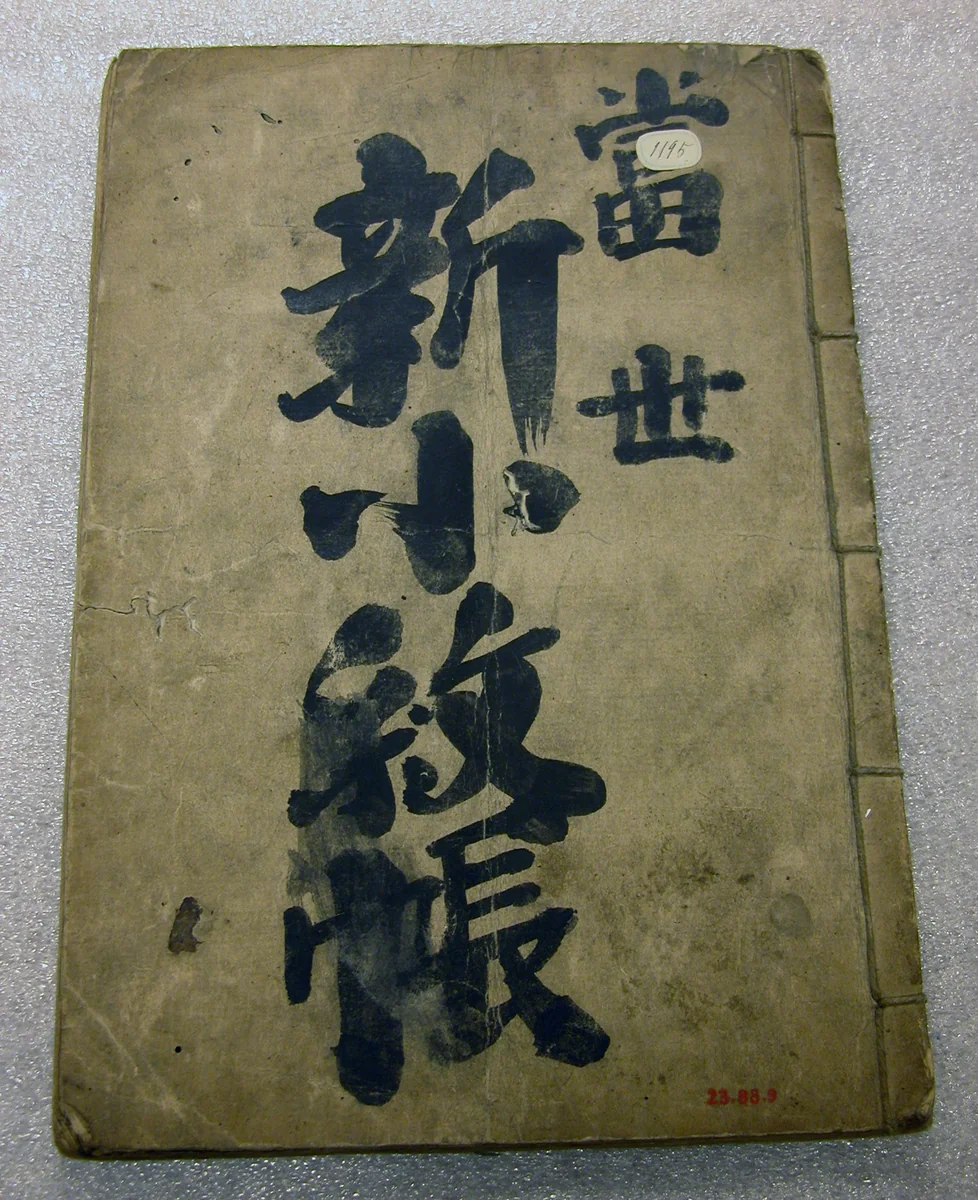 當世
新小紋帳
1195
23.88.9